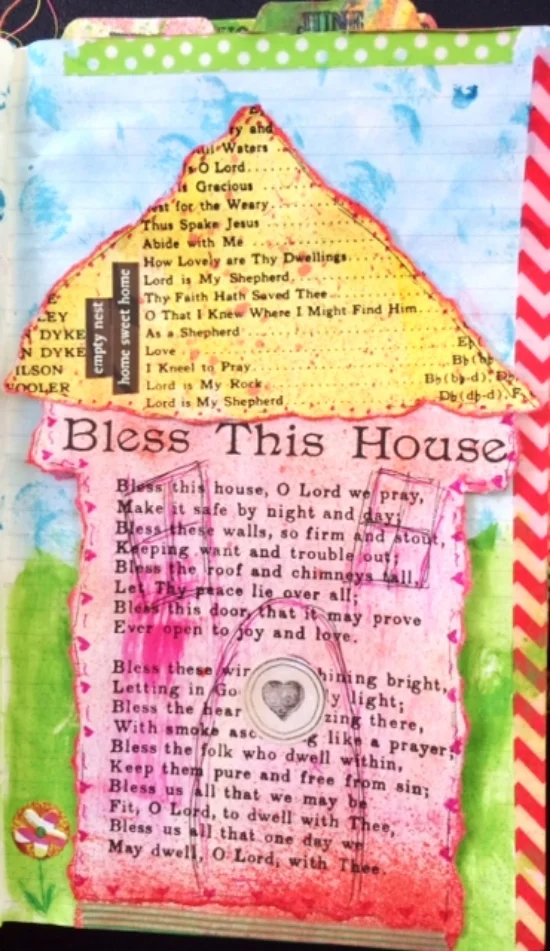 JUNE
ry and
Waters
O Lord
is Gracious
for the Weary
Thus Spake Jesus
Abide with Me
How Lovely are Thy Dwellings
Lord is My Shepherd
Thy Faith Hath Saved Thee
O That I Knew Where I Might Find Him
As a Shepherd
Love
I Kneel to Pray
Lord is My Rock
Lord is My Shepherd
EY
DYKE
N DYKE
ILSON
OOLER
empty nest
home sweet home
Bb(bb-d)
Db(db-d)
Bless This House
Bless this house, O Lord we pray,
Make it safe by night and day;
Bless these walls, so firm and stout,
Keeping want and trouble out;
Bless the roof and chimneys tall,
Let Thy peace lie over all;
Bless this door, that it may prove
Ever open to joy and love.
Bless these win hining bright,
Letting in Go y light;
Bless the hear zing there,
With smoke asc g like a prayer;
Bless the folk who dwell within,
Keep them pure and free from sin;
Bless us all that we may be
Fit, O Lord, to dwell with Thee,
Bless us all that one day we
May dwell, O Lord, with Thee.